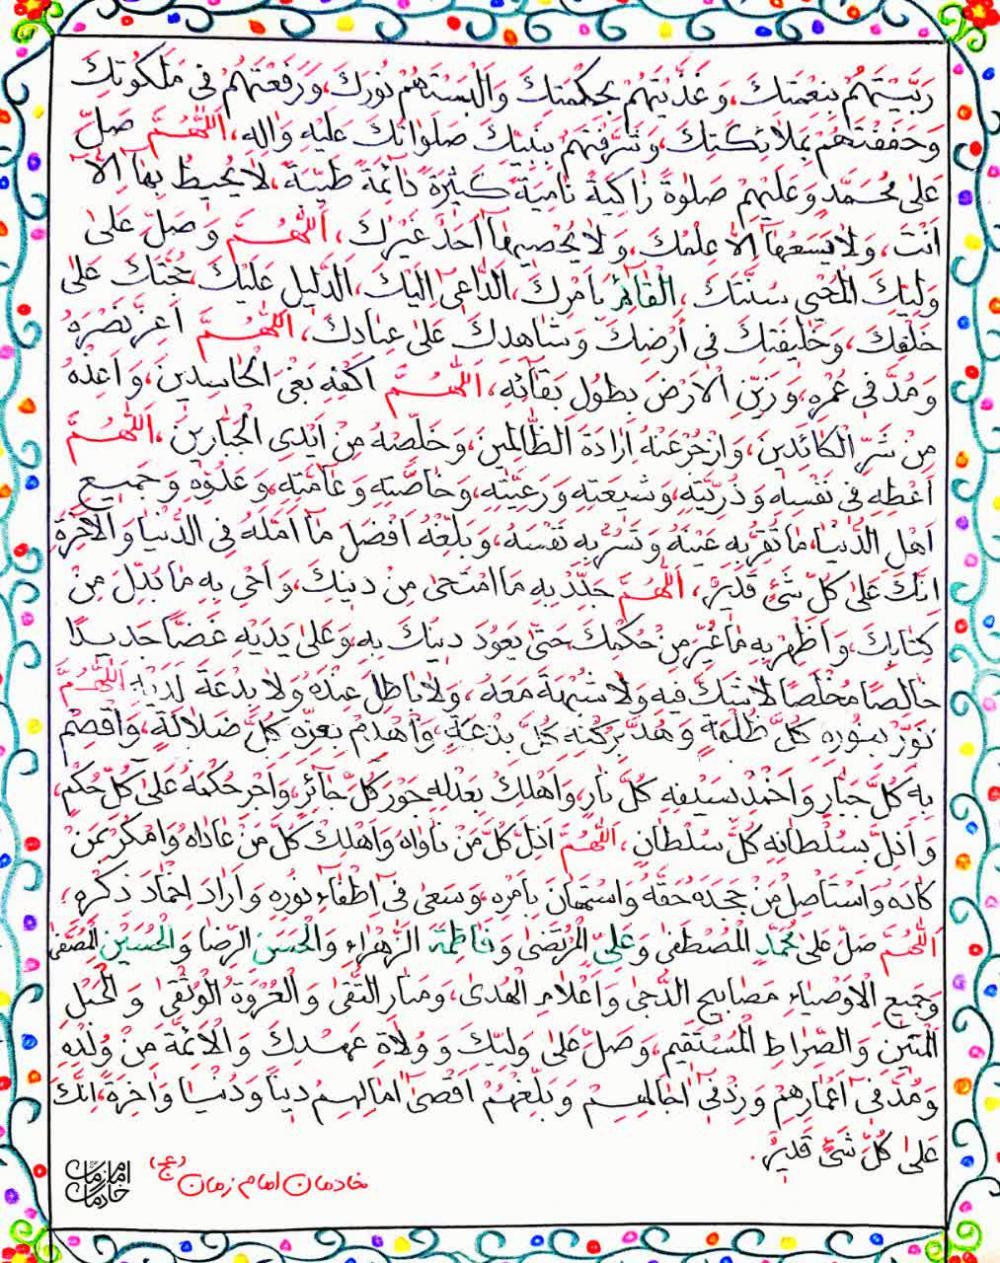 رَبَّيْتَهُمْ بِنِعْمَتِكَ، وَ غَذَّيْتَهُمْ بِحِكْمَتِكَ وَ اَلْبَسْتَهُمْ نُورَكَ، وَ رَفَعْتَهُمْ فى مَلَكُوتِكَ
وَ حَفَفْتَهُمْ بِمَلائِكَتِكَ، وَ شَرَّفْتَهُمْ بِنَبِيِّكَ صَلَواتُكَ عَلَيْهِ وَ الِهِ، اَللّهُمَّ صَلِّ
عَلى مُحَمَّدٍ وَ عَلَيْهِمْ صَلوةً زاكِيَةً نامِيَةً كَثيرَةً دائِمَةً طَيِّبَةً، لا يُحيطُ بِها اِلاَّ
اَنْتَ، وَ لا يَسَعُها اِلاَّ عِلْمُكَ، وَ لا يُحْصيها اَحَدٌ غَيْرُكَ، اَللّهُمَّ وَ صَلِّ عَلى
وَلِيِّكَ الْمُحْيى سُنَّتَكَ، الْقائِمِ بِاَمْرِكَ، الدّاعى اِلَيْكَ، الدَّليلِ عَلَيْكَ حُجَّتِكَ عَلى
خَلْقِكَ، وَ خَليفَتِكَ فى اَرْضِكَ وَ شاهِدِكَ عَلى عِبادِكَ، اَللّهُمَّ اَعِزَّ نَصْرَهُ
وَ مُدَّ فى عُمْرِهِ، وَ زَيِّنِ الْاَرْضَ بِطُولِ بَقآئِهِ، اَللّهُمَّ اكْفِهِ بَغْىَ الْحاسِدينَ، وَ اَعِذْهُ
مِنْ شَرِّ الْكائِدينَ، وَ ازْجُرْ عَنْهُ اِرادَةَ الظّالِمينَ، وَ خَلِّصْهُ مِنْ اَيْدِى الْجَبّارينَ، اَللّهُمَّ
اَعْطِهِ فى نَفْسِهِ وَ ذُرِّيَّتِهِ، وَ شيعَتِهِ وَ رَعِيَّتِهِ، وَ خاصَّتِهِ وَ عامَّتِهِ، وَ عَدُوِّهِ وَ جَميعِ
اَهْلِ الدُّنْيا، ما تُقِرُّ بِهِ عَيْنَهُ وَ تَسُرُّ بِهِ نَفْسَهُ، وَ بَلِّغْهُ اَفْضَلَ ما اَمَّلَهُ فِى الدُّنْيا وَ الْاخِرَةِ
اِنَّكَ عَلى كُلِّ شَىْءٍ قَديرٌ، اَللّهُمَّ جَدِّدْ بِهِ مَا امْتَحى مِنْ دينِكَ، وَ اَحْىِ بِهِ ما بُدِّلَ مِنْ
كِتابِكَ، وَ اَظْهِرْ بِهِ ما غُيِّرَ مِنْ حُكْمِكَ حَتّى يَعُودَ دينُكَ بِهِ وَ عَلى يَدَيْهِ غَضّاً جَديداً
خالِصاً مُخْلَصاً لا شَكَّ فيهِ وَ لا شُبْهَةَ مَعَهُ، وَ لا باطِلَ عِنْدَهُ وَ لا بِدْعَةَ لَدَيْهِ، اَللّهُمَّ
نَوِّرْ بِنُورِهِ كُلَّ ظُلْمَةٍ وَ هُدَّ بِرُكْنِهِ كُلَّ بِدْعَةٍ، وَ اهْدِمْ بِعِزِّهِ كُلَّ ضَلالَةٍ، وَ اقْصِمْ
بِهِ كُلَّ جَبّارٍ وَ اَخْمِدْ بِسَيْفِهِ كُلَّ نارٍ، وَ اَهْلِكْ بِعَدْلِهِ جَوْرَ كُلِّ جآئِرٍ، وَ اَجْرِ حُكْمَهُ عَلى كُلِّ حُكْمٍ،
وَ اَذِلَّ بِسُلْطانِهِ كُلَّ سُلْطانٍ، اَللّهُمَّ اَذِلَّ كُلَّ مَنْ ناواهُ وَ اَهْلِكْ كُلَّ مَنْ عاداهُ وَ امْكُرْ بِمَنْ
كادَهُ وَ اسْتَاْصِلْ مَنْ جَحَدَهُ حَقَّهُ وَ اسْتَهانَ بِاَمْرِهِ، وَ سَعى فى اِطْفآءِ نُورِهِ وَ اَرادَ اِخْمادَ ذِكْرِهِ،
اَللّهُمَّ صَلِّ عَلى مُحَمَّدٍ الْمُصْطَفى وَ عَلِىٍّ الْمُرْتَضى وَ فاطِمَةَ الزَّهْراءِ وَ الْحَسَنِ الرِّضا وَ الْحُسَيْنِ الْمُصَفّى
وَ جَميعِ الْاَوْصِياءِ مَصابيحِ الدُّجى وَ اَعْلامِ الْهُدى، وَ مَنارِ التُّقى وَ الْعُرْوَةِ الْوُثْقى وَ الْحَبْلِ
الْمَتينِ وَ الصِّراطِ الْمُسْتَقيمِ، وَ صَلِّ عَلى وَلِيِّكَ وَ وُلاةِ عَهْدِكَ وَ الْاَئِمَّةِ مِنْ وُلْدِهِ
وَ مُدَّ فى اَعْمارِهِمْ وَ زِدْ فى اجالِهِمْ وَ بَلِّغْهُمْ اَقْصى امالِهِمْ ديناً وَ دُنْيا وَ اخِرَةً، اِنَّكَ
عَلى كُلِّ شَىْءٍ قَديرٌ.
خادمان امام زمان (عج)
خادمان امام زمان